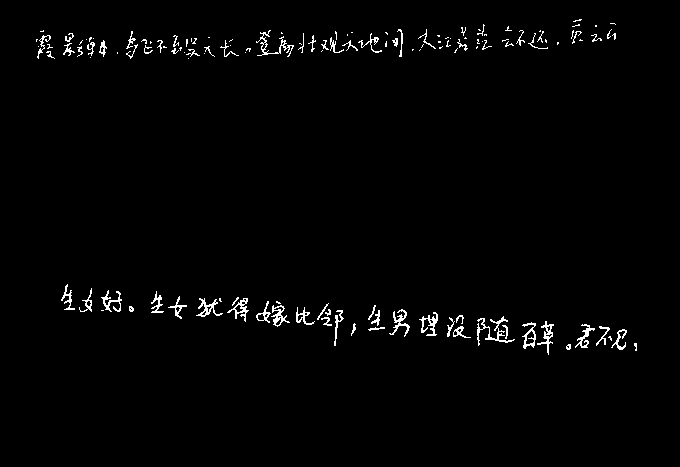 霞映彩练,鸟飞不到吴天长。登高壮观天地间,大江茫茫去不还,黄云
生女好。生女犹得嫁比邻,生男埋没随百草。君不见,